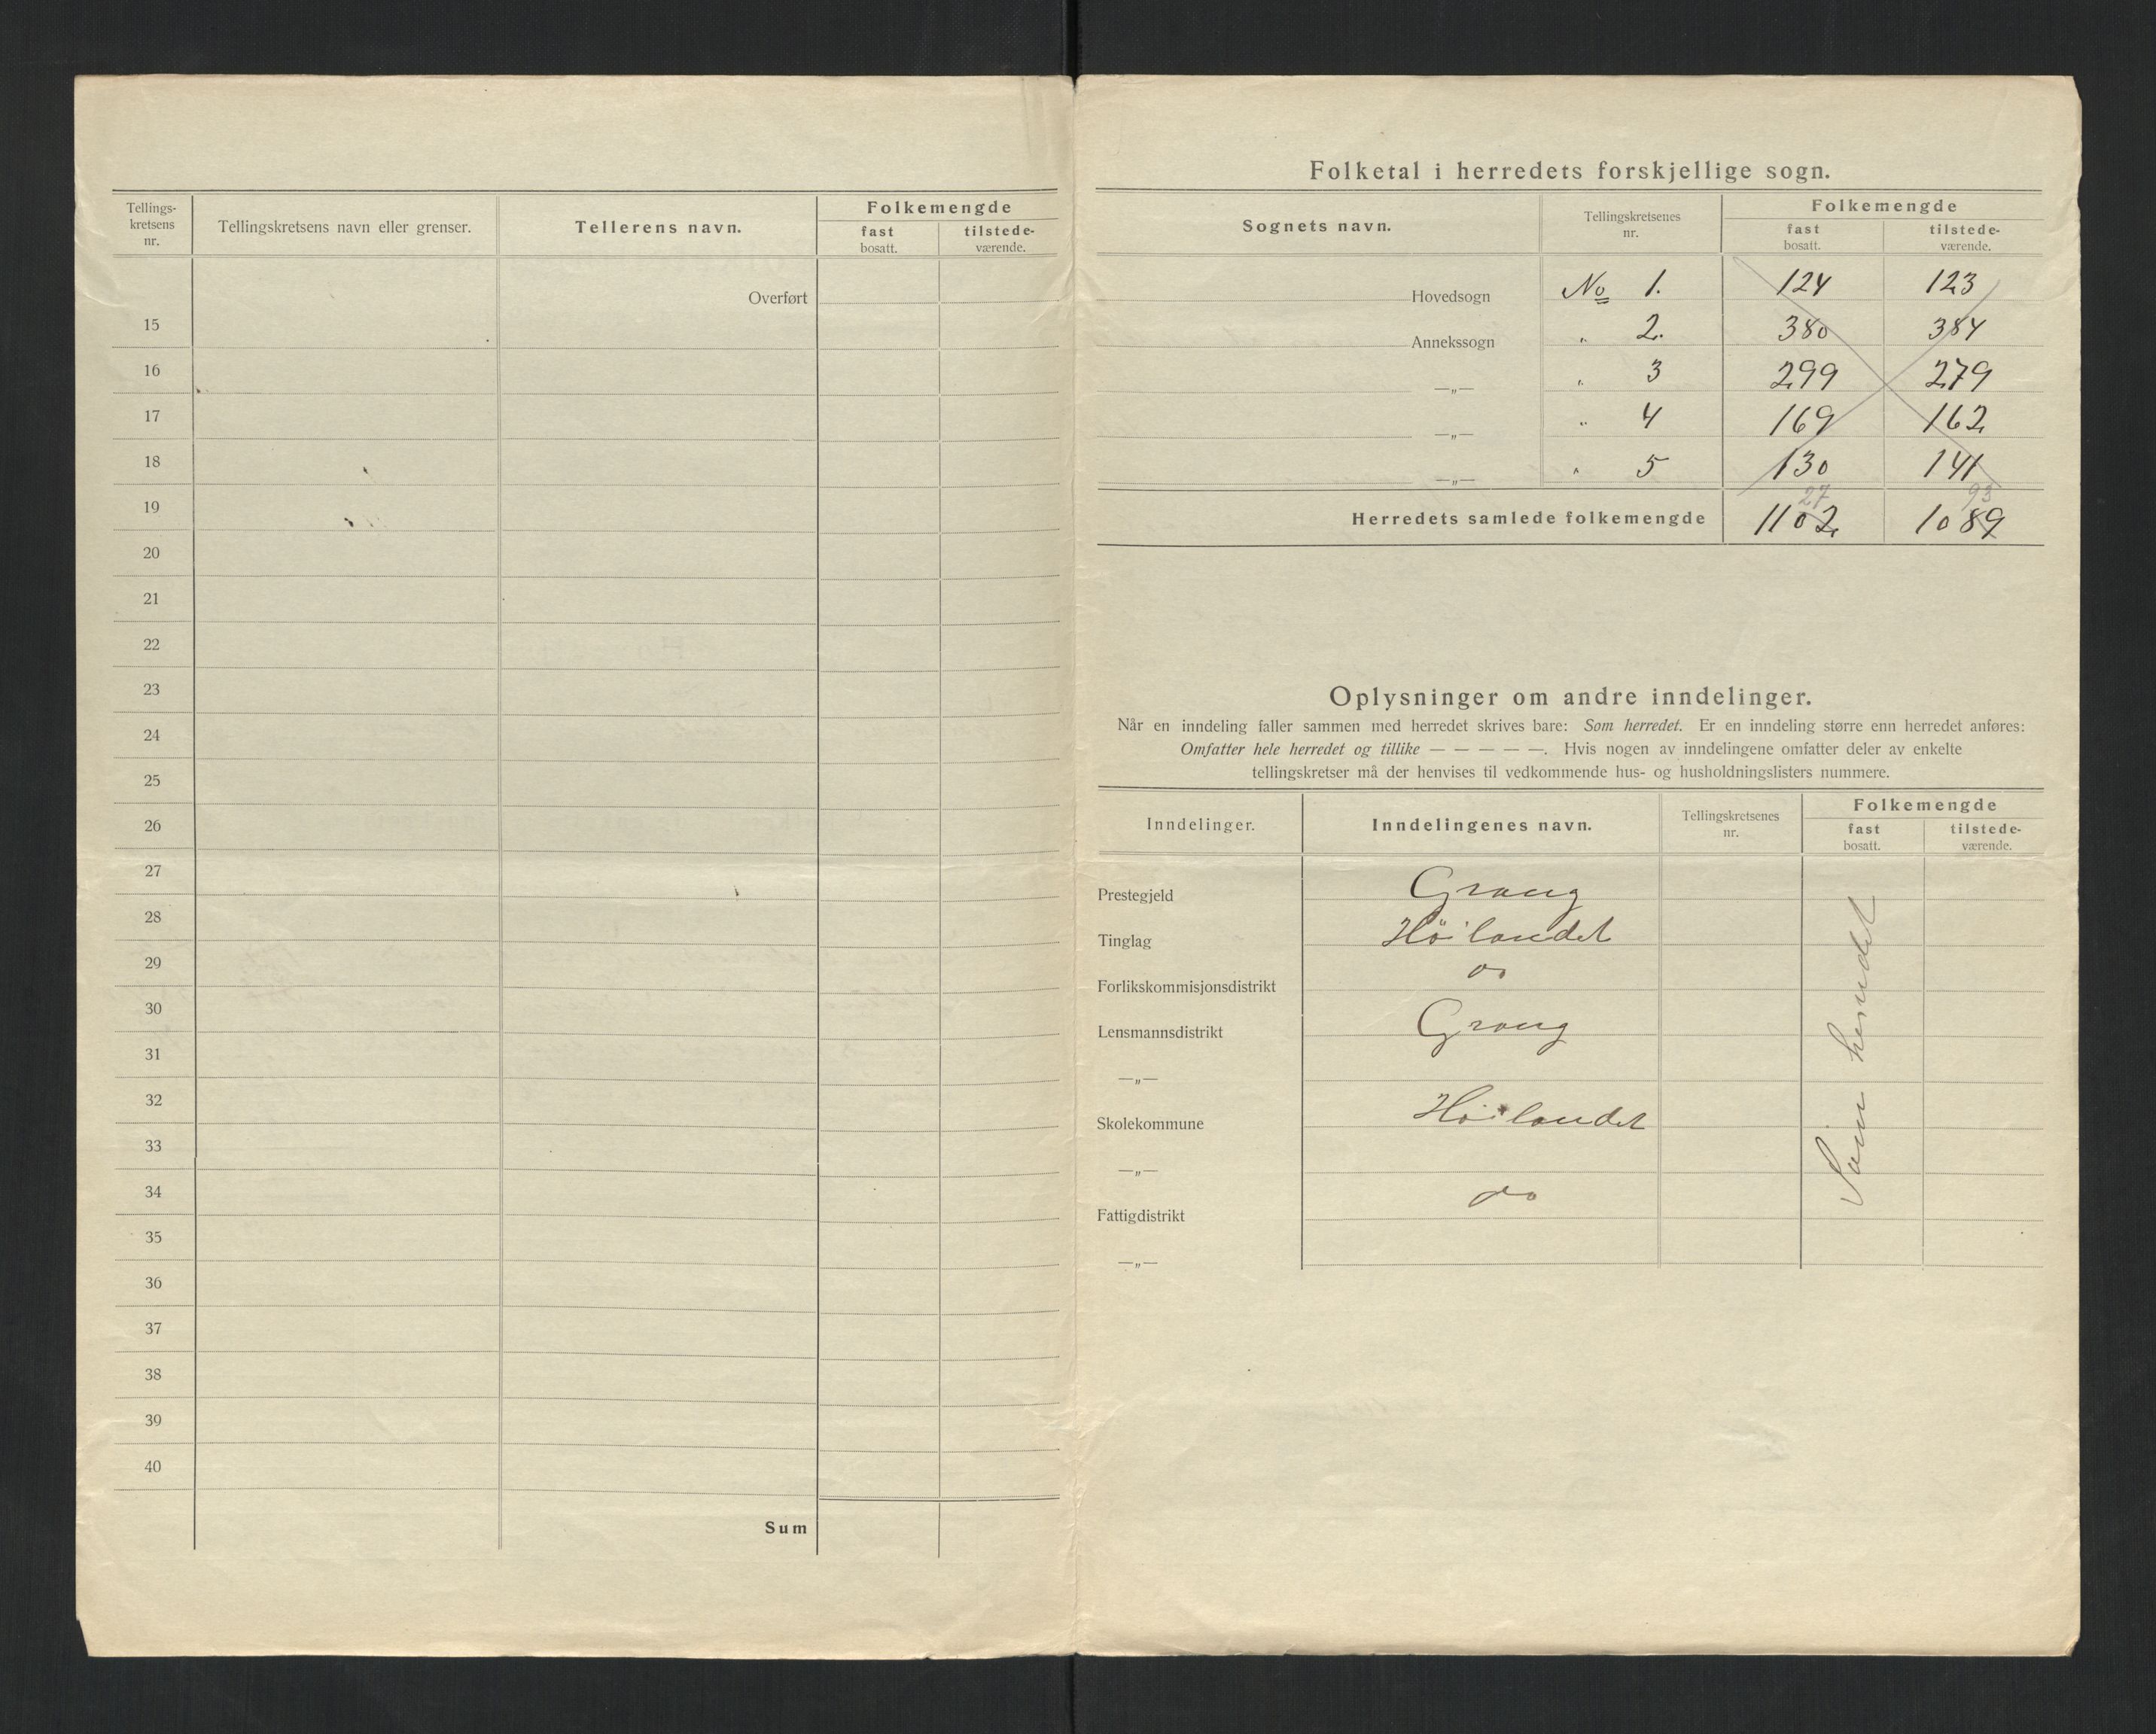 Tellings-
kretsens
nr.
Tellingskretsens navn eller grenser.
Tellerens navn.
Folkemengde
fast
bosatt.
tilstede-
værende.
Overført
15
16
17
18
19
20
21
22
23
24
25
26
27
28
29
30
31
32
33
34
35
36
37
38
39
40
Sum
Folketal i herredets forskjellige sogn.
Sognets navn.
Tellingskretsenes
nr.
Folkemengde
fast
bosatt.
tilstede-
værende.
Hovedsogn No 1. 124 123
Annekssogn " 2. 380 384
—„— " 3 299 279
—„— " 4 169 162
—„— " 5 130 141
27 93
Herredets samlede folkemengde 1102 1089
Oplysninger om andre inndelinger.
Når en inndeling faller sammen med herredet skrives bare: Som herredet. Er en inndeling større enn herredet anføres:
Omfatter hele herredet og tillike — — — — —. Hvis nogen av inndelingene omfatter deler av enkelte
tellingskretser må der henvises til vedkommende hus- og husholdningslisters nummere.
Inndelinger.
Inndelingenes navn.
Tellingskretsenes
nr.
Folkemengde
fast
bosatt.
tilstede-
værende.
Prestegjeld Grong
Tinglag Höilandet
Forlikskommisjonsdistrikt do
Lensmannsdistrikt Grong
—„—
Skolekommune Höilandet
—„—
Fattigdistrikt do
—„—
Som herredet